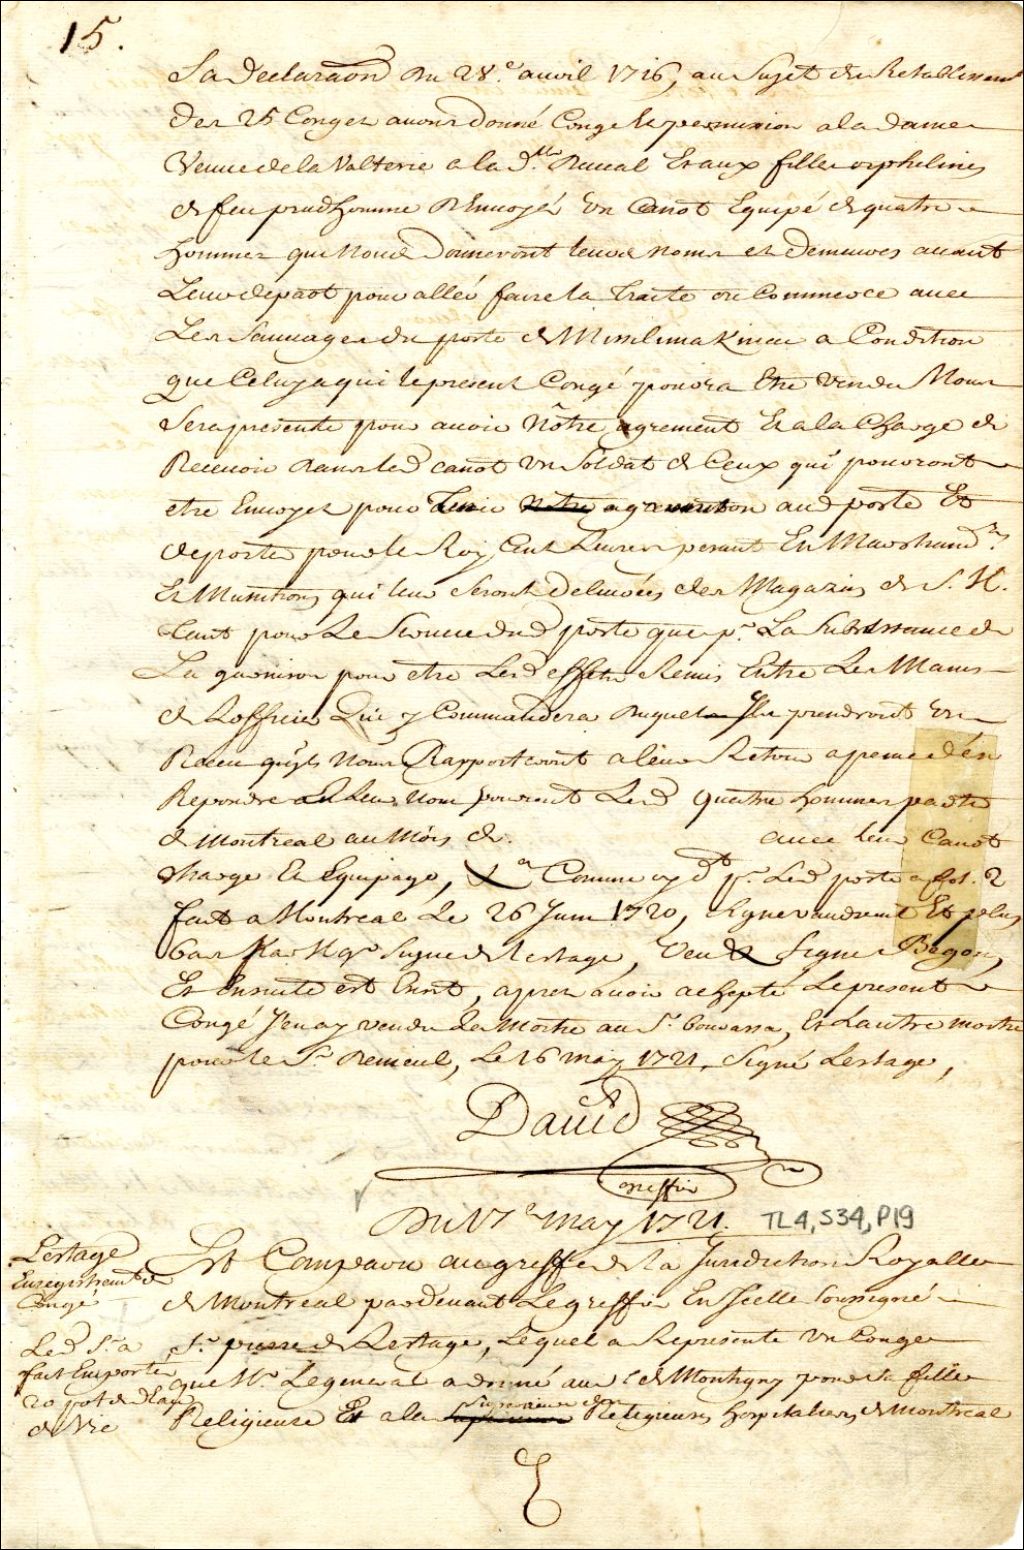 15.
La Declaraõn du 28.e auril 1716, au Sujet du Retablissemt
des 25 Conges auons donné Congé et permission a la dame
Veuue de la Valterie a la d.lle Et aux filles orphelines
de feu prudhomme d'Enuoyer Vn Canot Equipé de quatre
hommes qui nous donneront leurs noms et demeures auant
Leur depart pour aller faire la traite ou Commerce auec
Les Sauuages du poste de Missilimakinac a Condition
que Celuy a qui le present Congé poura Etre Vendu Nous
Sera presenté pour auoir Nôtre agrement Et a la Charge de
Receuoir dans led canot Vn Soldat de Ceux qui pouront
etre Enuoyes pour au d poste Et
de porter pour le Roy Cent Liures pesant En Marchand.es
Et Munitions qui leur Seront deliurées des Magazins de S. M.
tant pour Le Seruice dud poste que p.r La Subsistance de
La garnison pour etre Lesd effets Remis Entre Les Mains
de Lofficier Qui y Commandera duquel Ils prendront Vn
Receu qu'ils Nous Rapporteront a leur Retour a peine d'en
Repondre En Leur Nom pouront Lesd quatre hommes partir
de Montreal au Mois de. auec leur Canot
charge Et Equipage, Comme Led poste a fol. 2
fait a Montreal Le 26 Juin 1720, Signé vaudreuil Et plus
bas Par Mgr Signé de Lestage, Veu Signé Begon,
Et Ensuite est Ecrit, apres auoir accepté Le present
Congé J'en ay vendu La Moitie au S.r Et L'autre moitié
pour le S.r Le 16 may 1721. Signé Lestage,
Dauid
Greffier
Du 17e may 1721. TL4, S34, P19
Lestage
Enregistrement de
Congé
Led S.r a
fait Emporter
20 pot de d'Eau
de Vie
Est Comparu au greffe de la Jurisdiction Royalle
de Montreal pardeuant Le greffier En Icelle Soussigné
S.r pierre de Lestage, Lequel a Representé Vn Congé
que M.r Le general a donné au S.r de Montigny pour la fille
Religieuse Et a la Superieure des Religieuses hospitalieres de Montreal